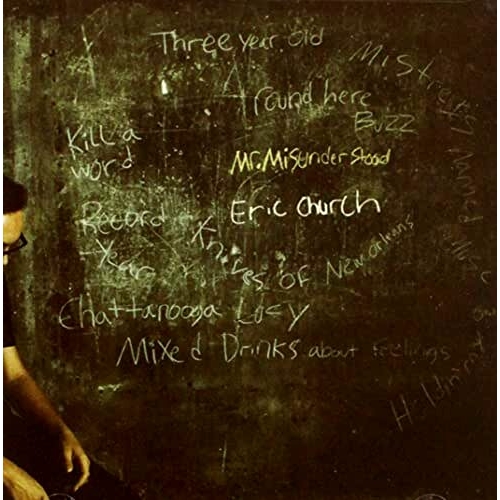 Three year old
Mistress Named
round here
Buzz
Kill a
word
Mr. Misunderstood
Record
Year
Eric Church
Knives of New Orleans
Chattanooga Lucy
Mixed Drinks about feelings